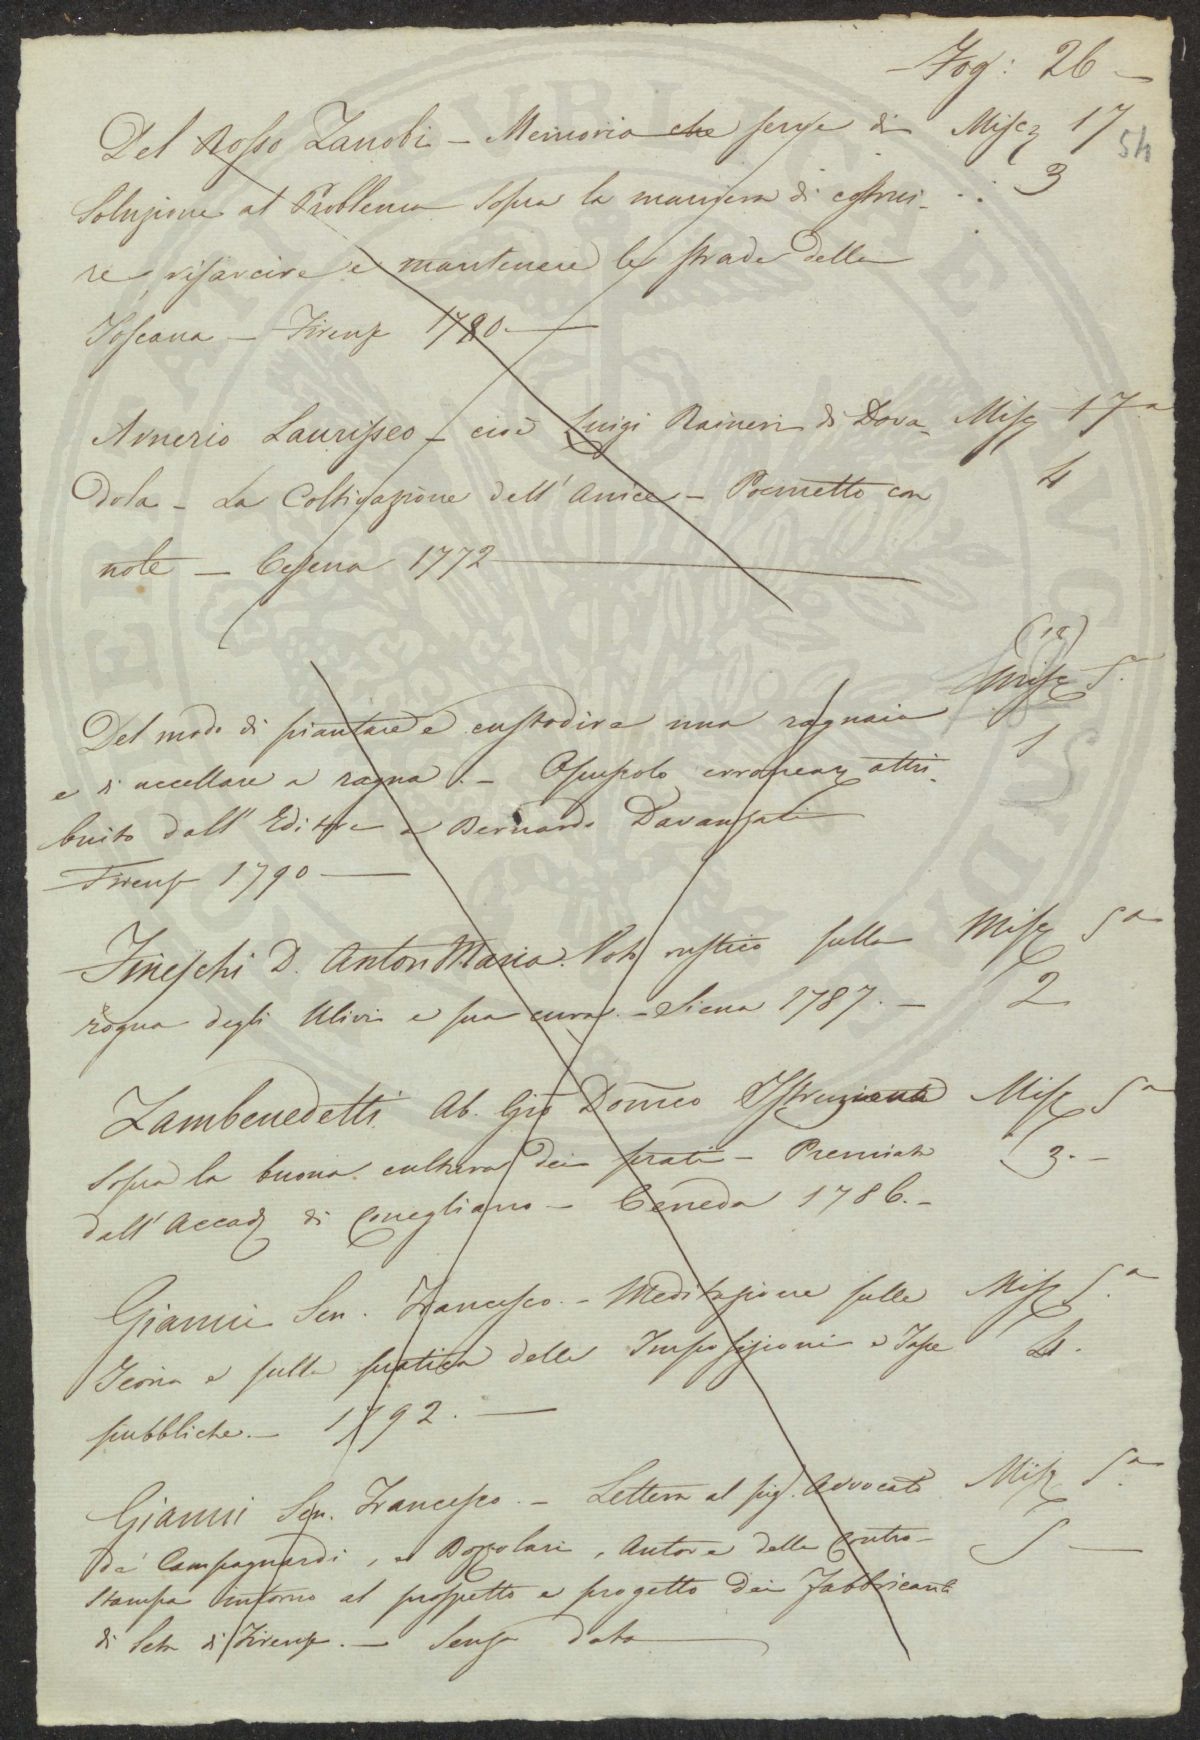 Fog: 26 –
Del Rosso Zanobi – Memoria che serve di Misc 17
54
Soluzione al Problema sopra la maniera di costrui- . . : 3
re, risarcire e mantenere le strade della
Toscana – Firenze 1780 –
Avnerio Laurisseo – cioè Luigi Raineri di Dova- Misc 17.a
dola – La Coltivazione dell' Anice – Poemetto con 4
note – Cesena 1772
(12)
Misc 5.a
Del modo di piantare e custodire una ragnaia 1
e di uccellare a ragna. – Opuscolo attri-
buito dall' Editore a Bernardo Davanzati
Firenze 1790 –
Fineschi D. Anton Maria. Voto rustico sulla Misc 5a
rogna degli Ulivi e sua cura. – Siena 1787. – 2
Zambenedetti Ab. Gio Domeco Istruzione Misc 5a
sopra la buona cultura dei prati – Premiata 3. –
dall' Accad di Conegliano – Ceneda 1786. –
Gianni Sen. Francesco. – Meditazione sulla Misc 5.a
Teoria e sulla pratica delle Imposizioni e Tasse 4.
pubbliche. – 1792. –
Gianni Sen. Francesco. – Lettera al sig. Avvocato Misc 5.a
De' Campagnardi, a Bozzolari, Autore della Contro- 5 –
Stampa intorno al prospetto e progetto dei Fabbricanti
di Seta di Firenze. – Senza data